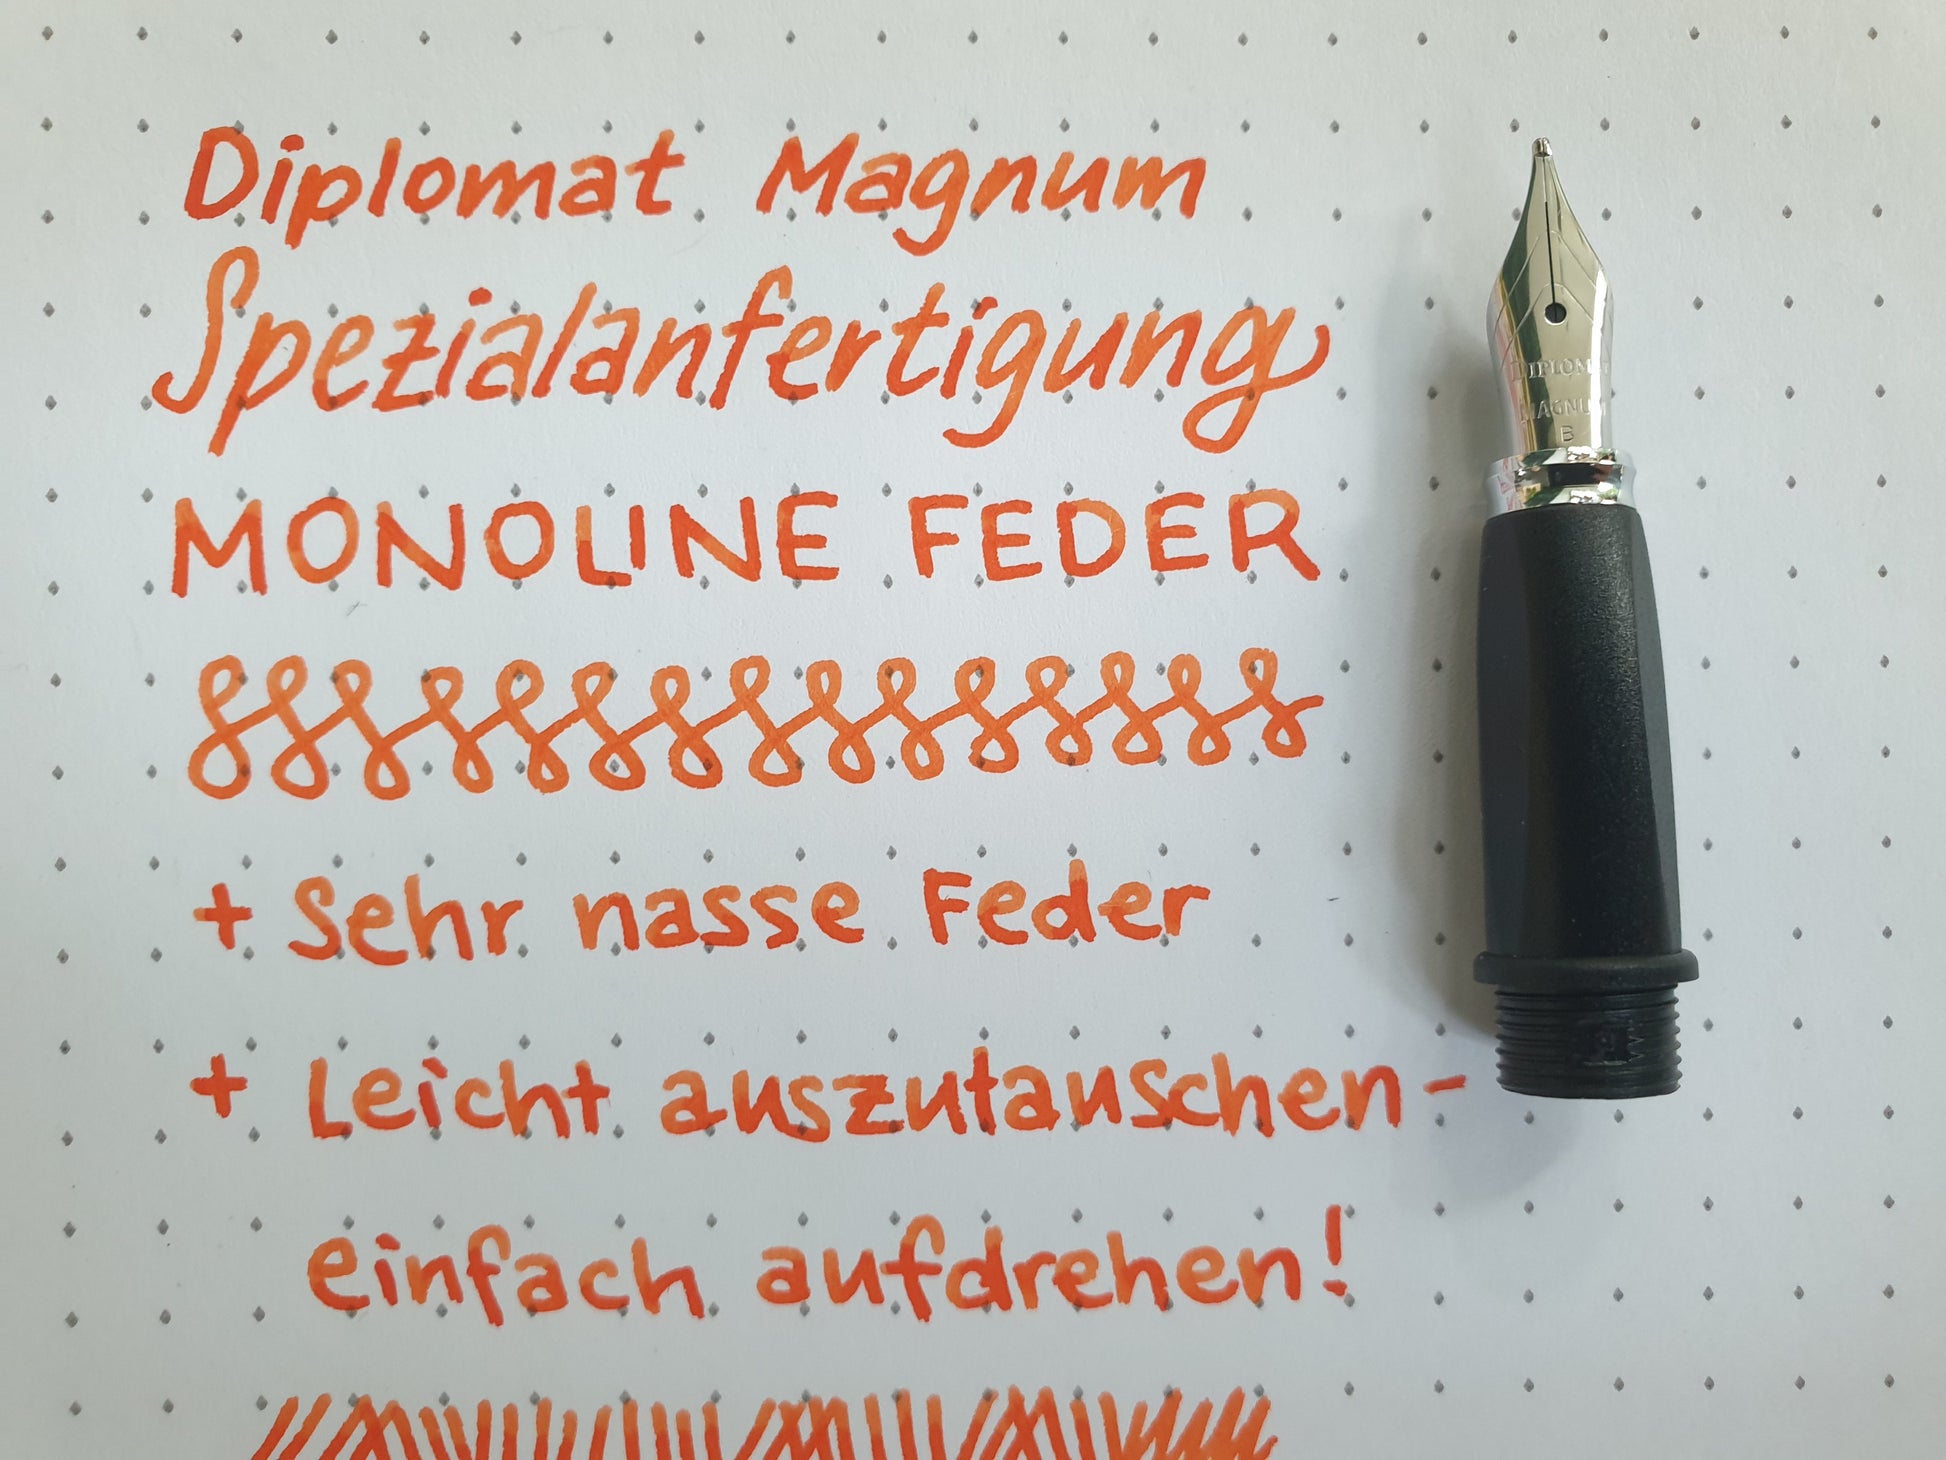 Diplomat Magnum
Spezialanfertigung
MONOLINE FEDER
+ Sehr nasse Feder
+ Leicht auszutauschen -
einfach aufdrehen!
DIPLOM
MAGNU
B